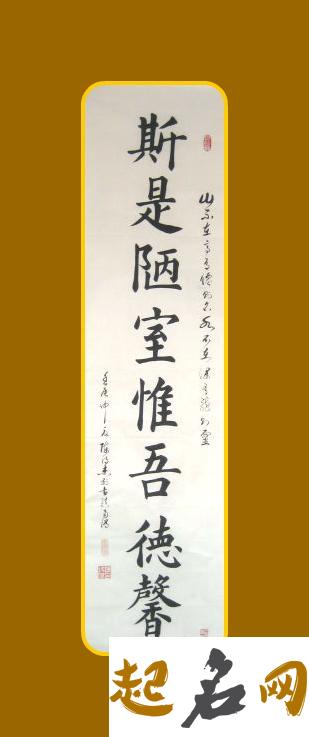 山不在高有僊则名水不在深有龍则靈
斯是陋室惟吾德馨
起名网